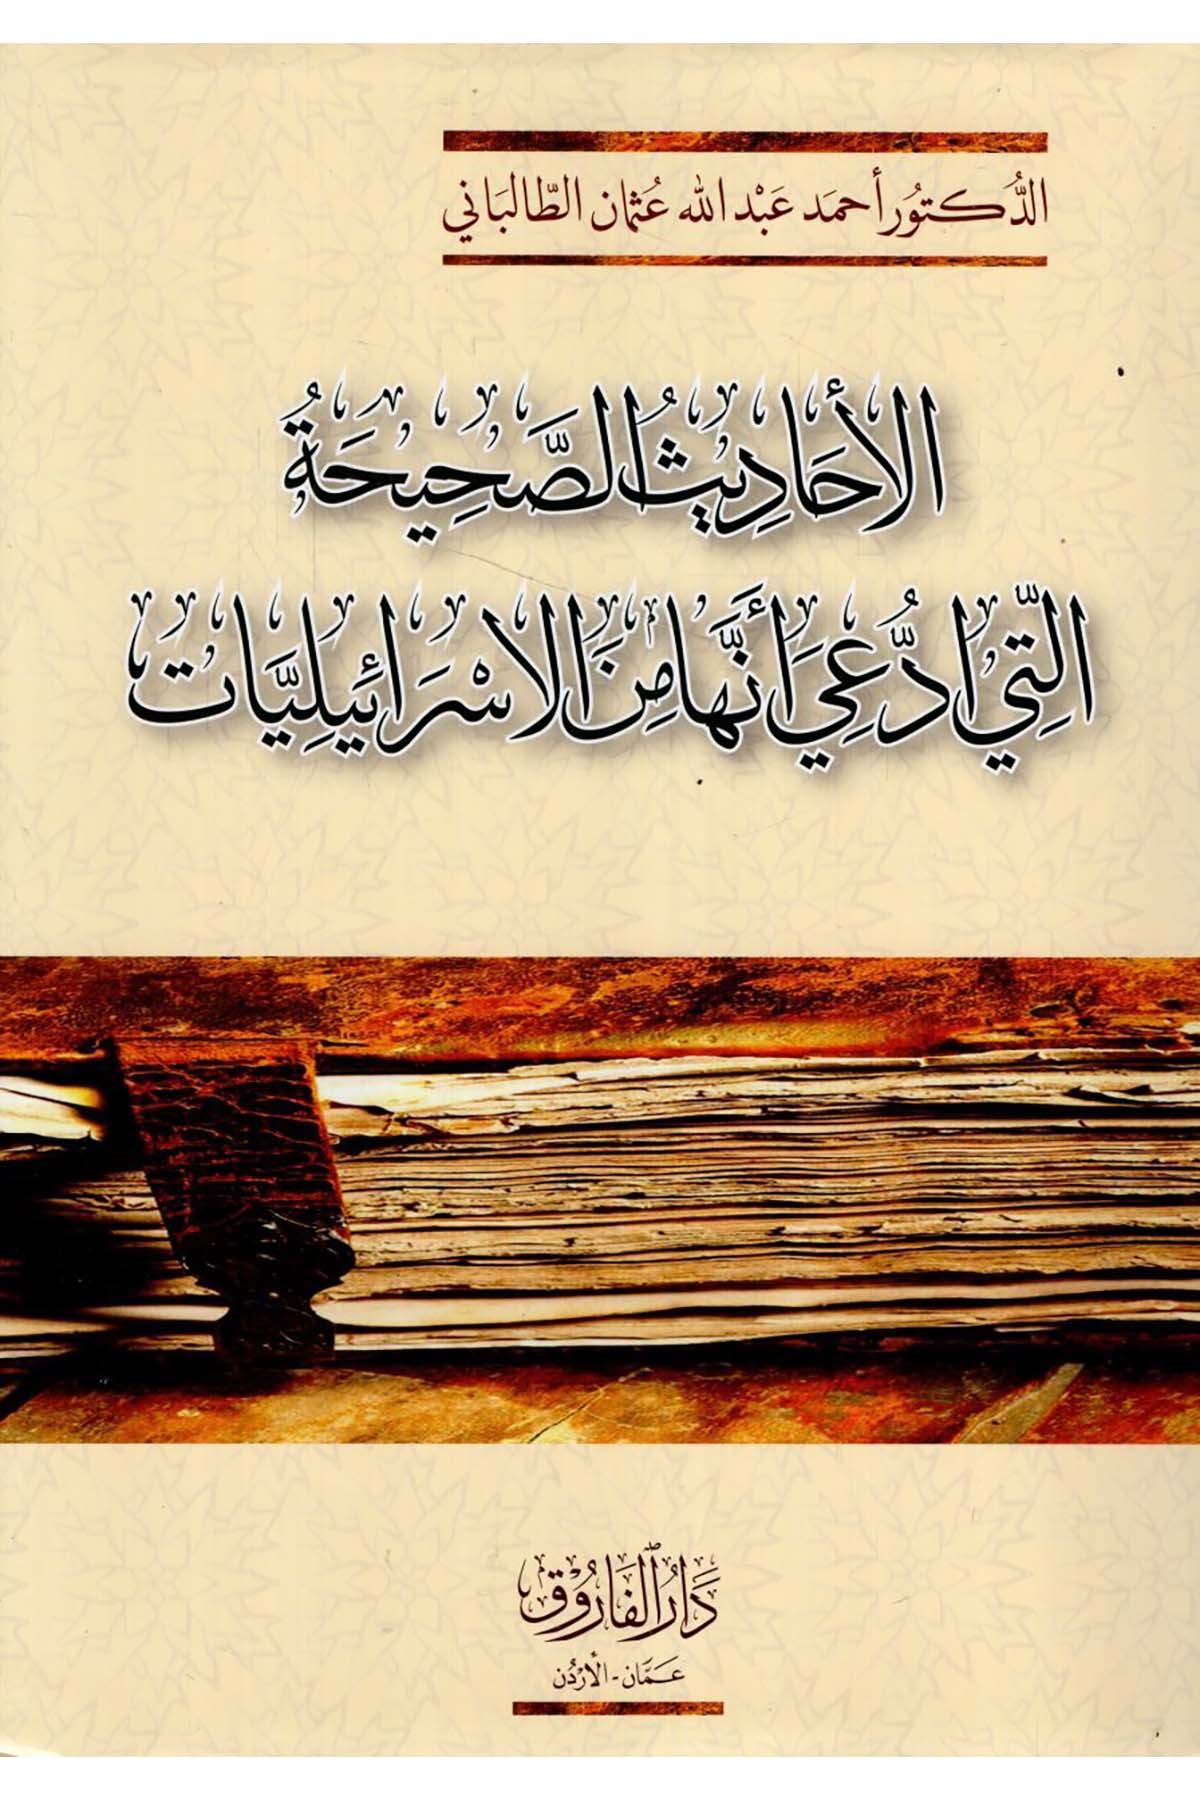 الدُّكتُور أحمَد عَبْد الله عُثمان الطَّالبَاني
الأَحَادِيثُ الصَّحِيحَةُ
التِي ادُّعِيَ أَنَّهَا مِنَ الاسْرَائِيلِيَّات
دَارُ الفَارُوق
عَمَّان - الأُرْدُن